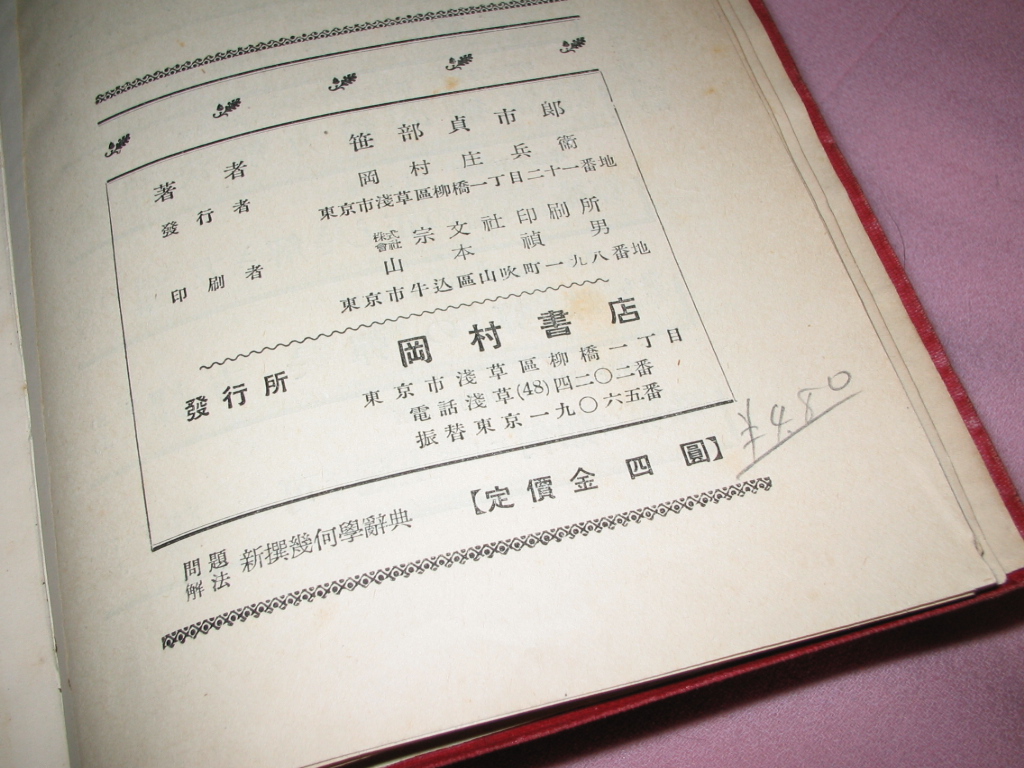 著者 笹部貞市郎
發行者 岡村庄兵衞
東京市淺草區柳橋一丁目二十一番地
株式會社 宗文社印刷所
印刷者 山本禎男
東京市牛込區山吹町一九八番地
發行所 岡村書店
東京市淺草區柳橋一丁目
電話淺草(48)四二〇二番
振替東京一九〇六五番
【定價金四圓】
問題解法 新撰幾何學辭典